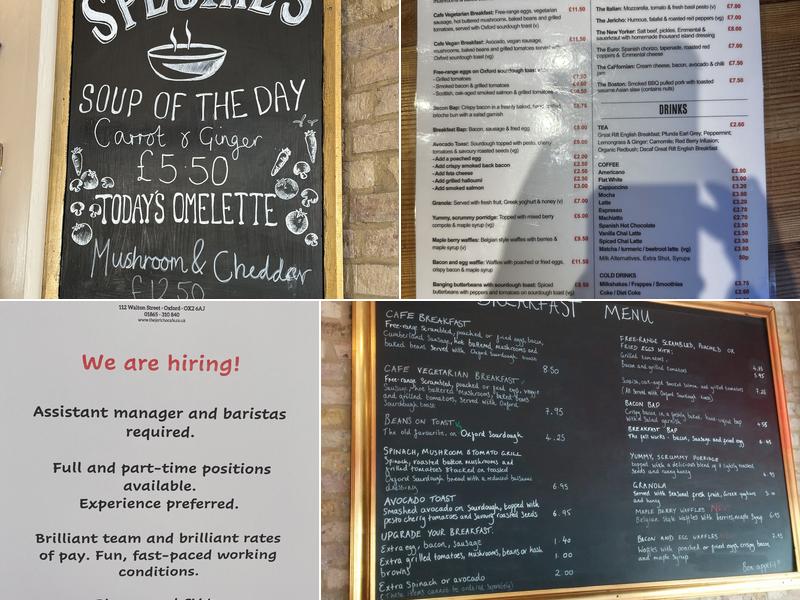 SPECIALS
SOUP OF THE DAY
Carrot & Ginger
£5.50
TODAY'S OMELETTE
Mushroom & Cheddar
£12.50
Cafe Vegetarian Breakfast: Free-range eggs, vegetarian £11.50
sausage, hot buttered mushrooms, baked beans and grilled
tomatoes, served with Oxford sourdough toast (v)
Cafe Vegan Breakfast: Avocado, vegan sausage, £11.50
mushrooms, baked beans and grilled tomatoes served with
Oxford sourdough toast (vg)
Free-range eggs on Oxford sourdough toast
- Grilled tomatoes
- Smoked bacon & grilled tomatoes
- Scottish, oak-aged smoked salmon & grilled tomatoes
Bacon Bap: Crispy bacon in a freshly baked,
brioche bun with a salad garnish
Breakfast Bap: Bacon, sausage & fried egg
Avocado Toast: Sourdough topped with pesto, cherry
tomatoes & savoury roasted seeds (vg)
- Add a poached egg £2.00
- Add crispy smoked back bacon £2.50
- Add feta cheese £2.50
- Add grilled halloumi £2.50
- Add smoked salmon £3.00
Granola: Served with fresh fruit, Greek yoghurt & honey (v) £7.00
Yummy, scrummy porridge: Topped with mixed berry £5.00
compote & maple syrup (vg)
Maple berry waffles: Belgian style waffles with berries & £9.50
maple syrup (v)
Bacon and egg waffle: Waffles with poached or fried eggs, £11.50
crispy bacon & maple syrup
Banging butterbeans with sourdough toast: Spiced
butterbeans with peppers and tomatoes on sourdough toast (vg)
The Italian: Mozzarella, tomato & fresh basil pesto (v) £7.00
The Jericho: Humous, falafel & roasted red peppers (vg) £7.00
The New Yorker: Salt beef, pickles, Emmental & £8.00
sauerkraut with homemade thousand island dressing
The Euro: Spanish chorizo, tapenade, roasted red £7.50
peppers & Emmental cheese
The Califfornian: Cream cheese, bacon, avocado & chilli £7.50
jam
The Boston: Smoked BBQ pulled pork with toasted £7.50
sesame Asian slaw (contains nuts)
DRINKS
TEA £2.60
Great Rift English Breakfast; Pfunda Earl Grey; Peppermint;
Lemongrass & Ginger; Camomile; Red Berry Infusion;
Organic Redbush; Decaf Great Rift English Breakfast
COFFEE
Americano £2.80
Flat White £3.00
Cappuccino £3.20
Mocha £3.60
Latte £3.20
Espresso £2.70
Machiatto £2.70
Spanish Hot Chocolate £3.50
Vanilla Chai Latte £3.50
Spiced Chai Latte £3.50
Matcha / turmeric / beetroot latte (vg) £3.60
Milk Alternatives, Extra Shot, Syrups 50p
COLD DRINKS
Milkshakes / Frappes / Smoothies £3.75
Coke / Diet Coke £2.60
112 Walton Street · Oxford · OX2 6AJ
01865 - 310 840
www.thejerichocafe.co.uk
We are hiring!
Assistant manager and baristas
required.
Full and part-time positions
available.
Experience preferred.
Brilliant team and brilliant rates
of pay. Fun, fast-paced working
conditions.
BREAKFAST MENU
CAFE BREAKFAST
Free-range Scrambled, poached or fried eggs, bacon,
Cumberland Sausage, hot buttered mushrooms and
baked beans served with Oxford sourdough toast
8.50
CAFE VEGETARIAN BREAKFAST
Free-range Scrambled, poached or fried egg, veggie
Sausage, hot buttered mushrooms, baked beans
and grilled tomatoes, served with Oxford
Sourdough toast
7.95
BEANS ON TOAST
The old favourite, on Oxford Sourdough 4.25
SPINACH, MUSHROOM & TOMATO GRILL
Spinach, roasted button mushrooms and
grilled tomatoes stacked on toasted
Oxford Sourdough bread with a reduced balsamic
dressing 6.95
AVOCADO TOAST
Smashed avocado on Sourdough, topped with
pesto cherry tomatoes and savoury roasted seeds 6.95
UPGRADE YOUR BREAKFAST:
Extra egg, bacon, sausage 1.40
Extra grilled tomatoes, mushrooms, beans or hash
browns 1.00
Extra Spinach or avocado 2.00
(These items cannot be ordered separately)
FREE-RANGE SCRAMBLED, POACHED OR
FRIED EGGS WITH:
Grilled tomatoes
Bacon and grilled tomatoes 5.95
Scottish, oak-aged smoked salmon and grilled tomatoes 7.25
(All served with Oxford Sourdough toast)
BACON BAP
Crispy bacon in a freshly baked, hand-shaped bap
with a Salad garnish 4.55
BREAKFAST BAP
The full works - bacon, Sausage and fried egg 6.45
YUMMY, SCRUMMY PORRIDGE
topped with a delicious blend of lightly toasted
seeds and runny honey
GRANOLA
Served with Seasonal fresh fruit, Greek yoghurt
and honey
MAPLE BERRY WAFFLES
Belgian Style Waffles with berries, maple Syrup 6.95
BACON AND EGG WAFFLES
Waffles with poached or fried eggs, crispy bacon
and maple Syrup
Bon appetit!